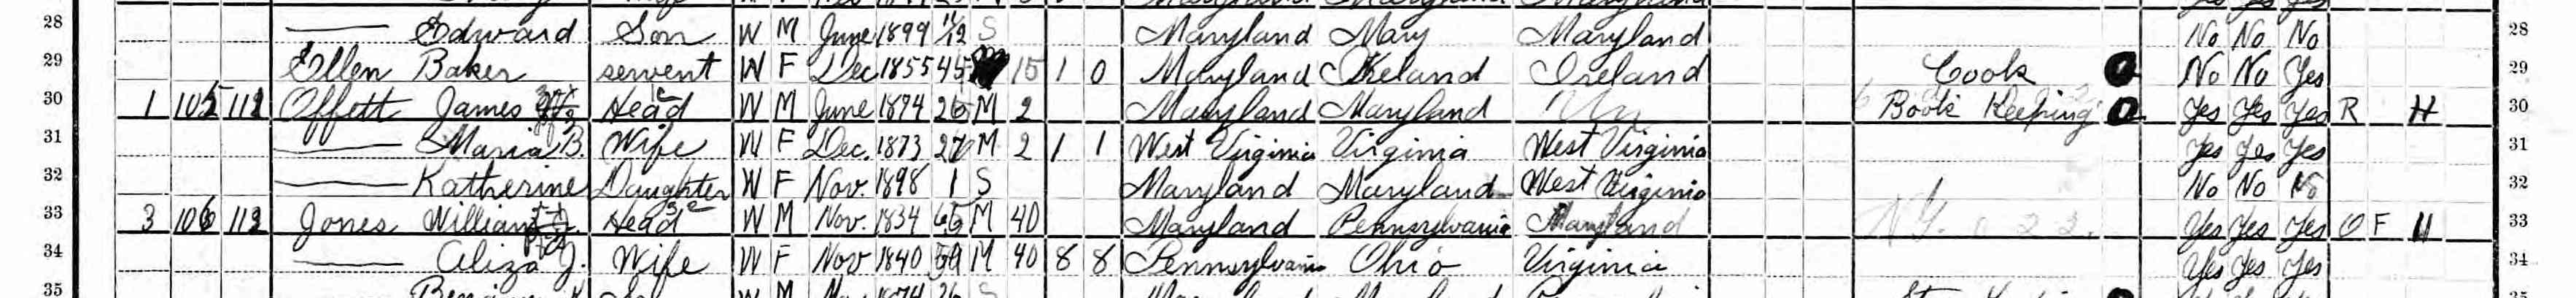 28 Edward Son W M June 1899 11/12 S Maryland Mary Maryland No No No 28
29 Ellen Baker servent W F Dec 1855 45 15 1 0 Maryland Ireland Ireland Cook 0 No No Yes 29
30 1 105 112 Offett James Head W M June 1874 26 M 2 Maryland Maryland Book Keeping 0 Yes Yes Yes R H 30
31 Maria B. Wife W F Dec. 1873 27 M 2 1 1 West Virginia Virginia West Virginia Yes Yes Yes 31
32 Katherine Daughter W F Nov. 1898 1 S Maryland Maryland West Virginia No No No 32
33 3 106 113 Jones William Head W M Nov. 1834 65 M 40 Maryland Pennsylvania Maryland Yes Yes Yes O F H 33
34 Aliza J. Wife W F Nov 1840 59 M 40 8 8 Pennsylvania Ohio Virginia Yes Yes Yes 34
35